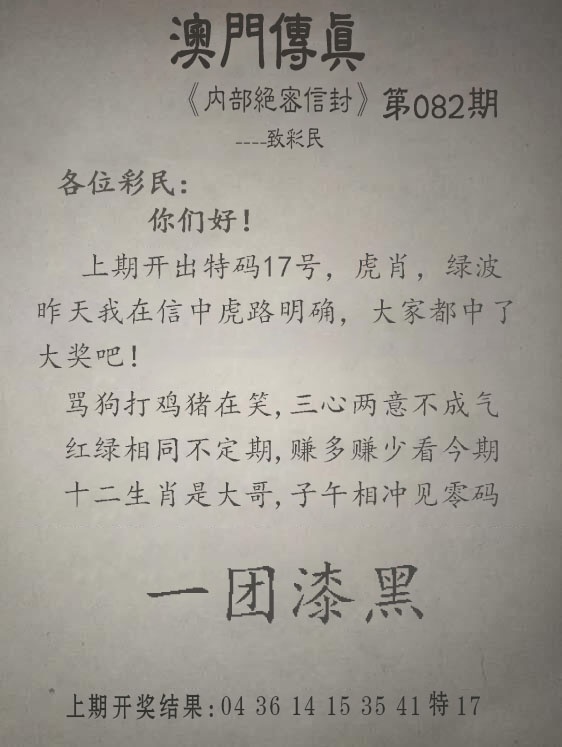 澳門傳真
《内部絕密信封》第082期
----致彩民
各位彩民：
你们好！
上期开出特码17号，虎肖，绿波
昨天我在信中虎路明确，大家都中了
大奖吧！
骂狗打鸡猪在笑,三心两意不成气
红绿相同不定期,赚多赚少看今期
十二生肖是大哥,子午相冲见零码
一团漆黑
上期开奖结果:04 36 14 15 35 41 特 17